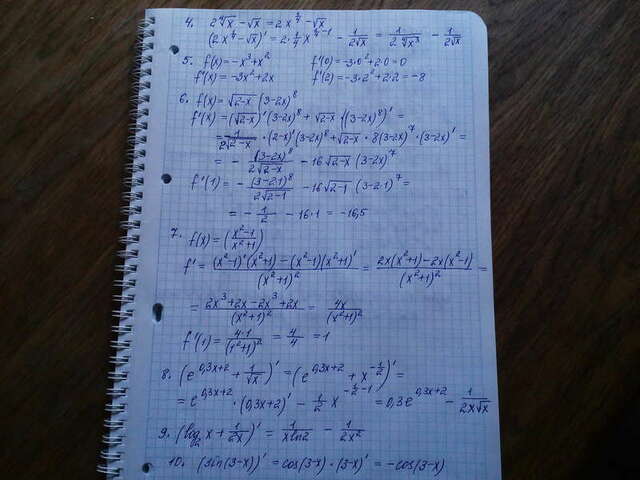 4. 2⁴√x − √x = 2x^{1/4} − √x
(2x^{1/4} − √x)' = 2·1/4 x^{1/4−1} − 1/(2√x) = 1/(2 ⁴√x³) − 1/(2√x)
5. f(x) = −x³+x² f'(0) = −3·0²+2·0 = 0
f'(x) = −3x²+2x f'(2) = −3·2²+2·2 = −8
6. f(x) = √(2−x) (3−2x)⁸
f'(x) = (√(2−x))'(3−2x)⁸ + √(2−x) ((3−2x)⁸)' =
= 1/(2√(2−x)) · (2−x)'(3−2x)⁸ + √(2−x) · 8(3−2x)⁷·(3−2x)' =
= − (3−2x)⁸/(2√(2−x)) − 16√(2−x) (3−2x)⁷
f'(1) = − (3−2·1)⁸/(2√(2−1)) − 16√(2−1) (3−2·1)⁷ =
= − 1/2 − 16·1 = −16,5
7. f(x) = ((x²−1)/(x²+1))
f' = ((x²−1)'(x²+1) − (x²−1)(x²+1)')/(x²+1)² = (2x(x²+1) − 2x(x²−1))/(x²+1)² =
= (2x³+2x−2x³+2x)/(x²+1)² = 4x/(x²+1)²
f'(1) = 4·1/(1²+1)² = 4/4 = 1
8. (e^{0,3x+2} + 1/√x)' = (e^{0,3x+2} + x^{−1/2})' =
= e^{0,3x+2} · (0,3x+2)' − 1/2 x^{−1/2−1} = 0,3e^{0,3x+2} − 1/(2x√x)
9. (log₂ x + 1/(2x))' = 1/(x ln2) − 1/(2x²)
10. (sin(3−x))' = cos(3−x)·(3−x)' = −cos(3−x)